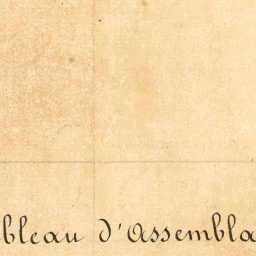 bleau d'Assembla